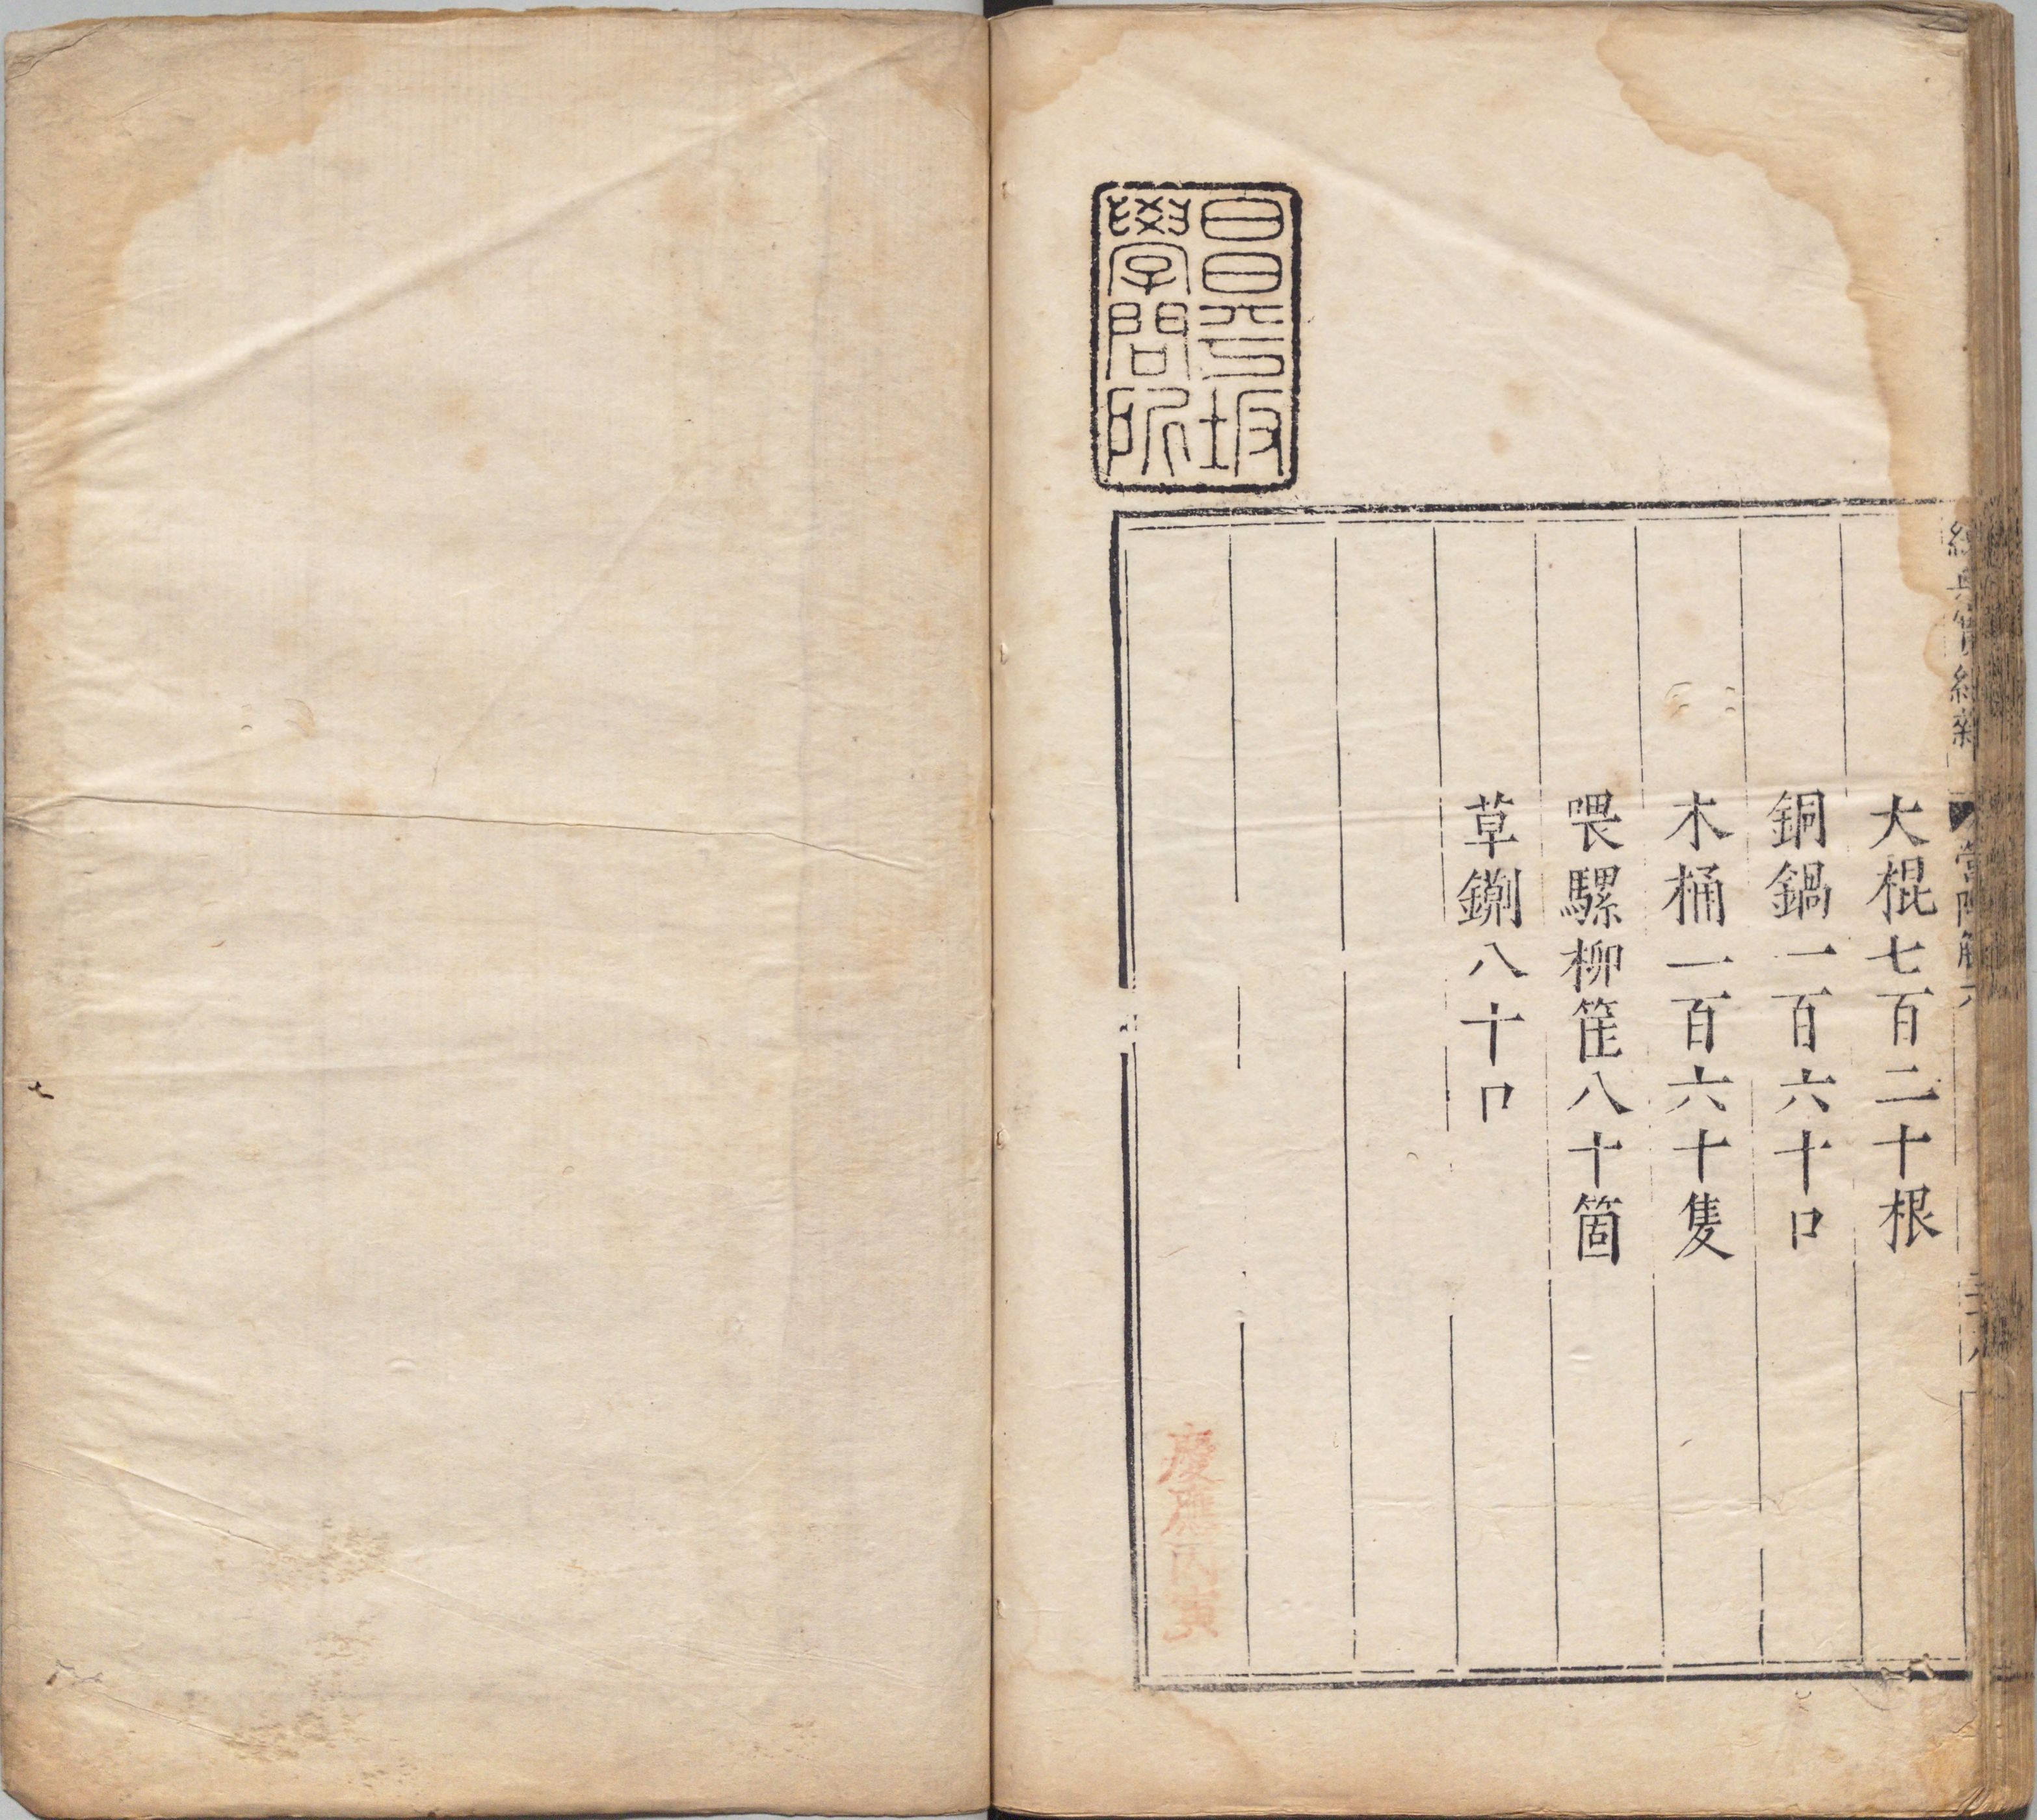 大棍七百二十根
銅鍋一百六十口
木桶一百六十隻
喂騾柳筐八十箇
草鍘八十口
昌平坂
學問所
慶應丙寅